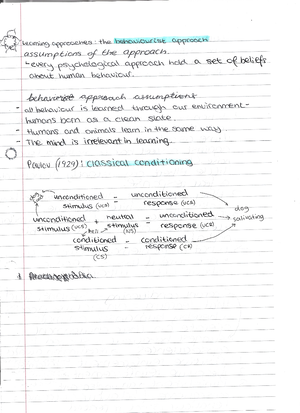 Learning approaches: the behaviourist approach
assumptions of the approach.
- every psychological approach hold a set of beliefs
about human behaviour.
behaviourist approach assumptions
- all behaviour is learned through our environment -
humans born as a clean slate.
- Humans and animals learn in the same way
- The mind is irrelevant in learning.
Pavlov (1929): classical conditioning
unconditioned stimulus (UCS) = unconditioned response (UCR)
unconditioned stimulus (UCS) + neutral stimulus (NS) = unconditioned response (UCR)
dog salivating
conditioned stimulus (CS) = conditioned response (CR)